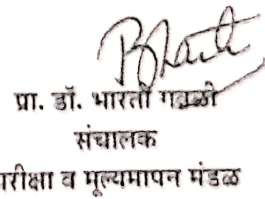 प्रा. डॉ. भारती गवळी
संचालक
परीक्षा व मूल्यमापन मंडळ